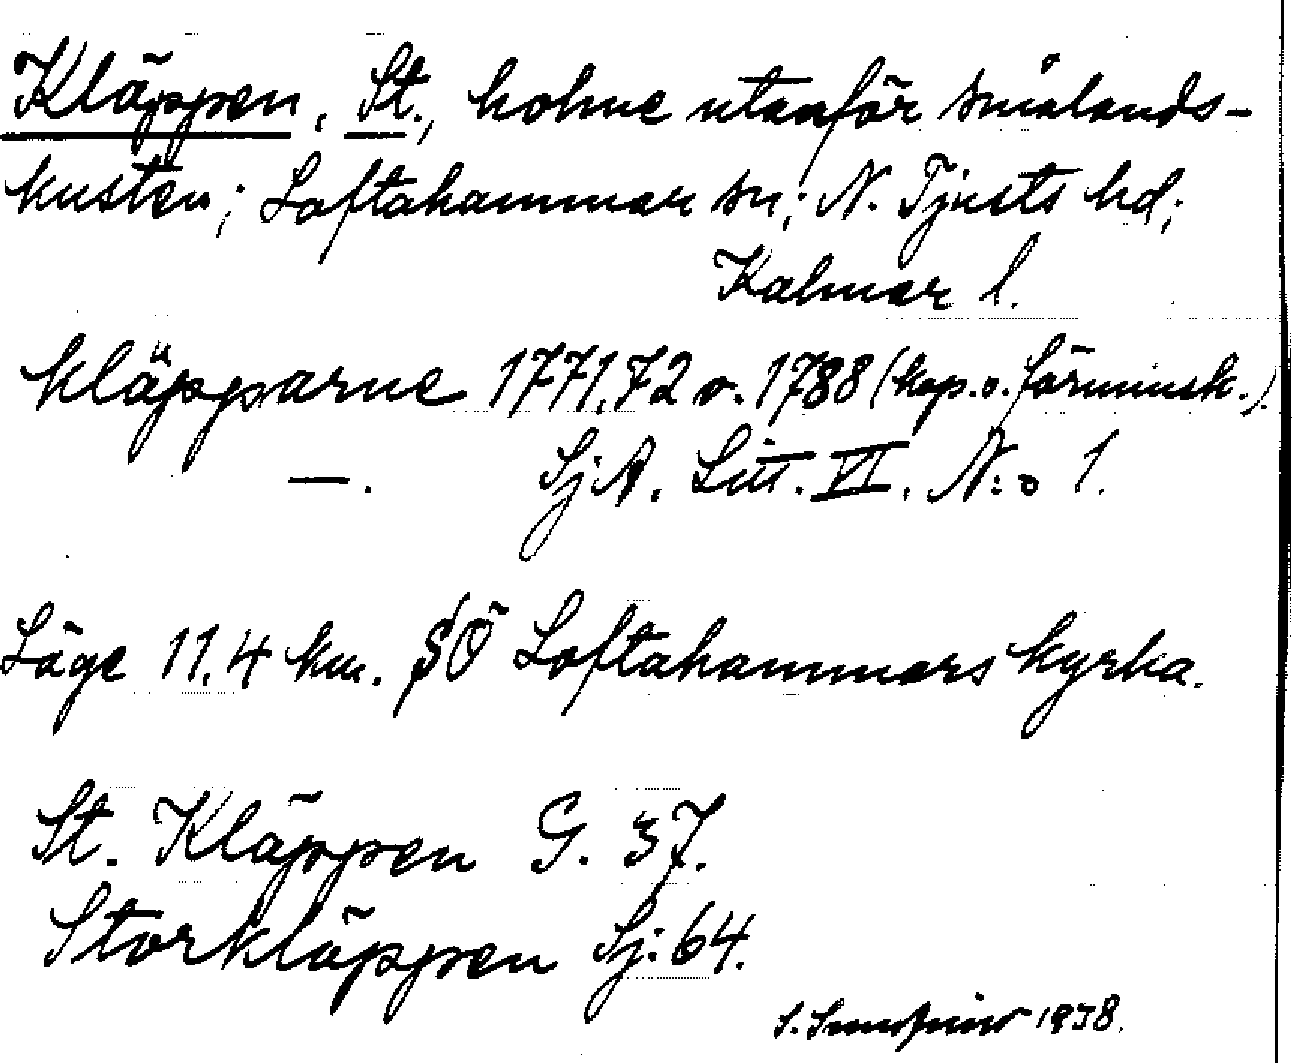 Kläppen, St., holme utanför Smålands-
kusten; Loftahammar sn; N. Tjusts hd;
Kalmar l.
Kläpparne 1771.72 o. 1788 (kop. o. förminsk.).
—. SjA. Litt. VI. N:o 1.
Läge 11.4 km. SÖ Loftahammars kyrka.
St. Kläppen G. 37.
Storkläppen Sj: 64.
S. 1938.